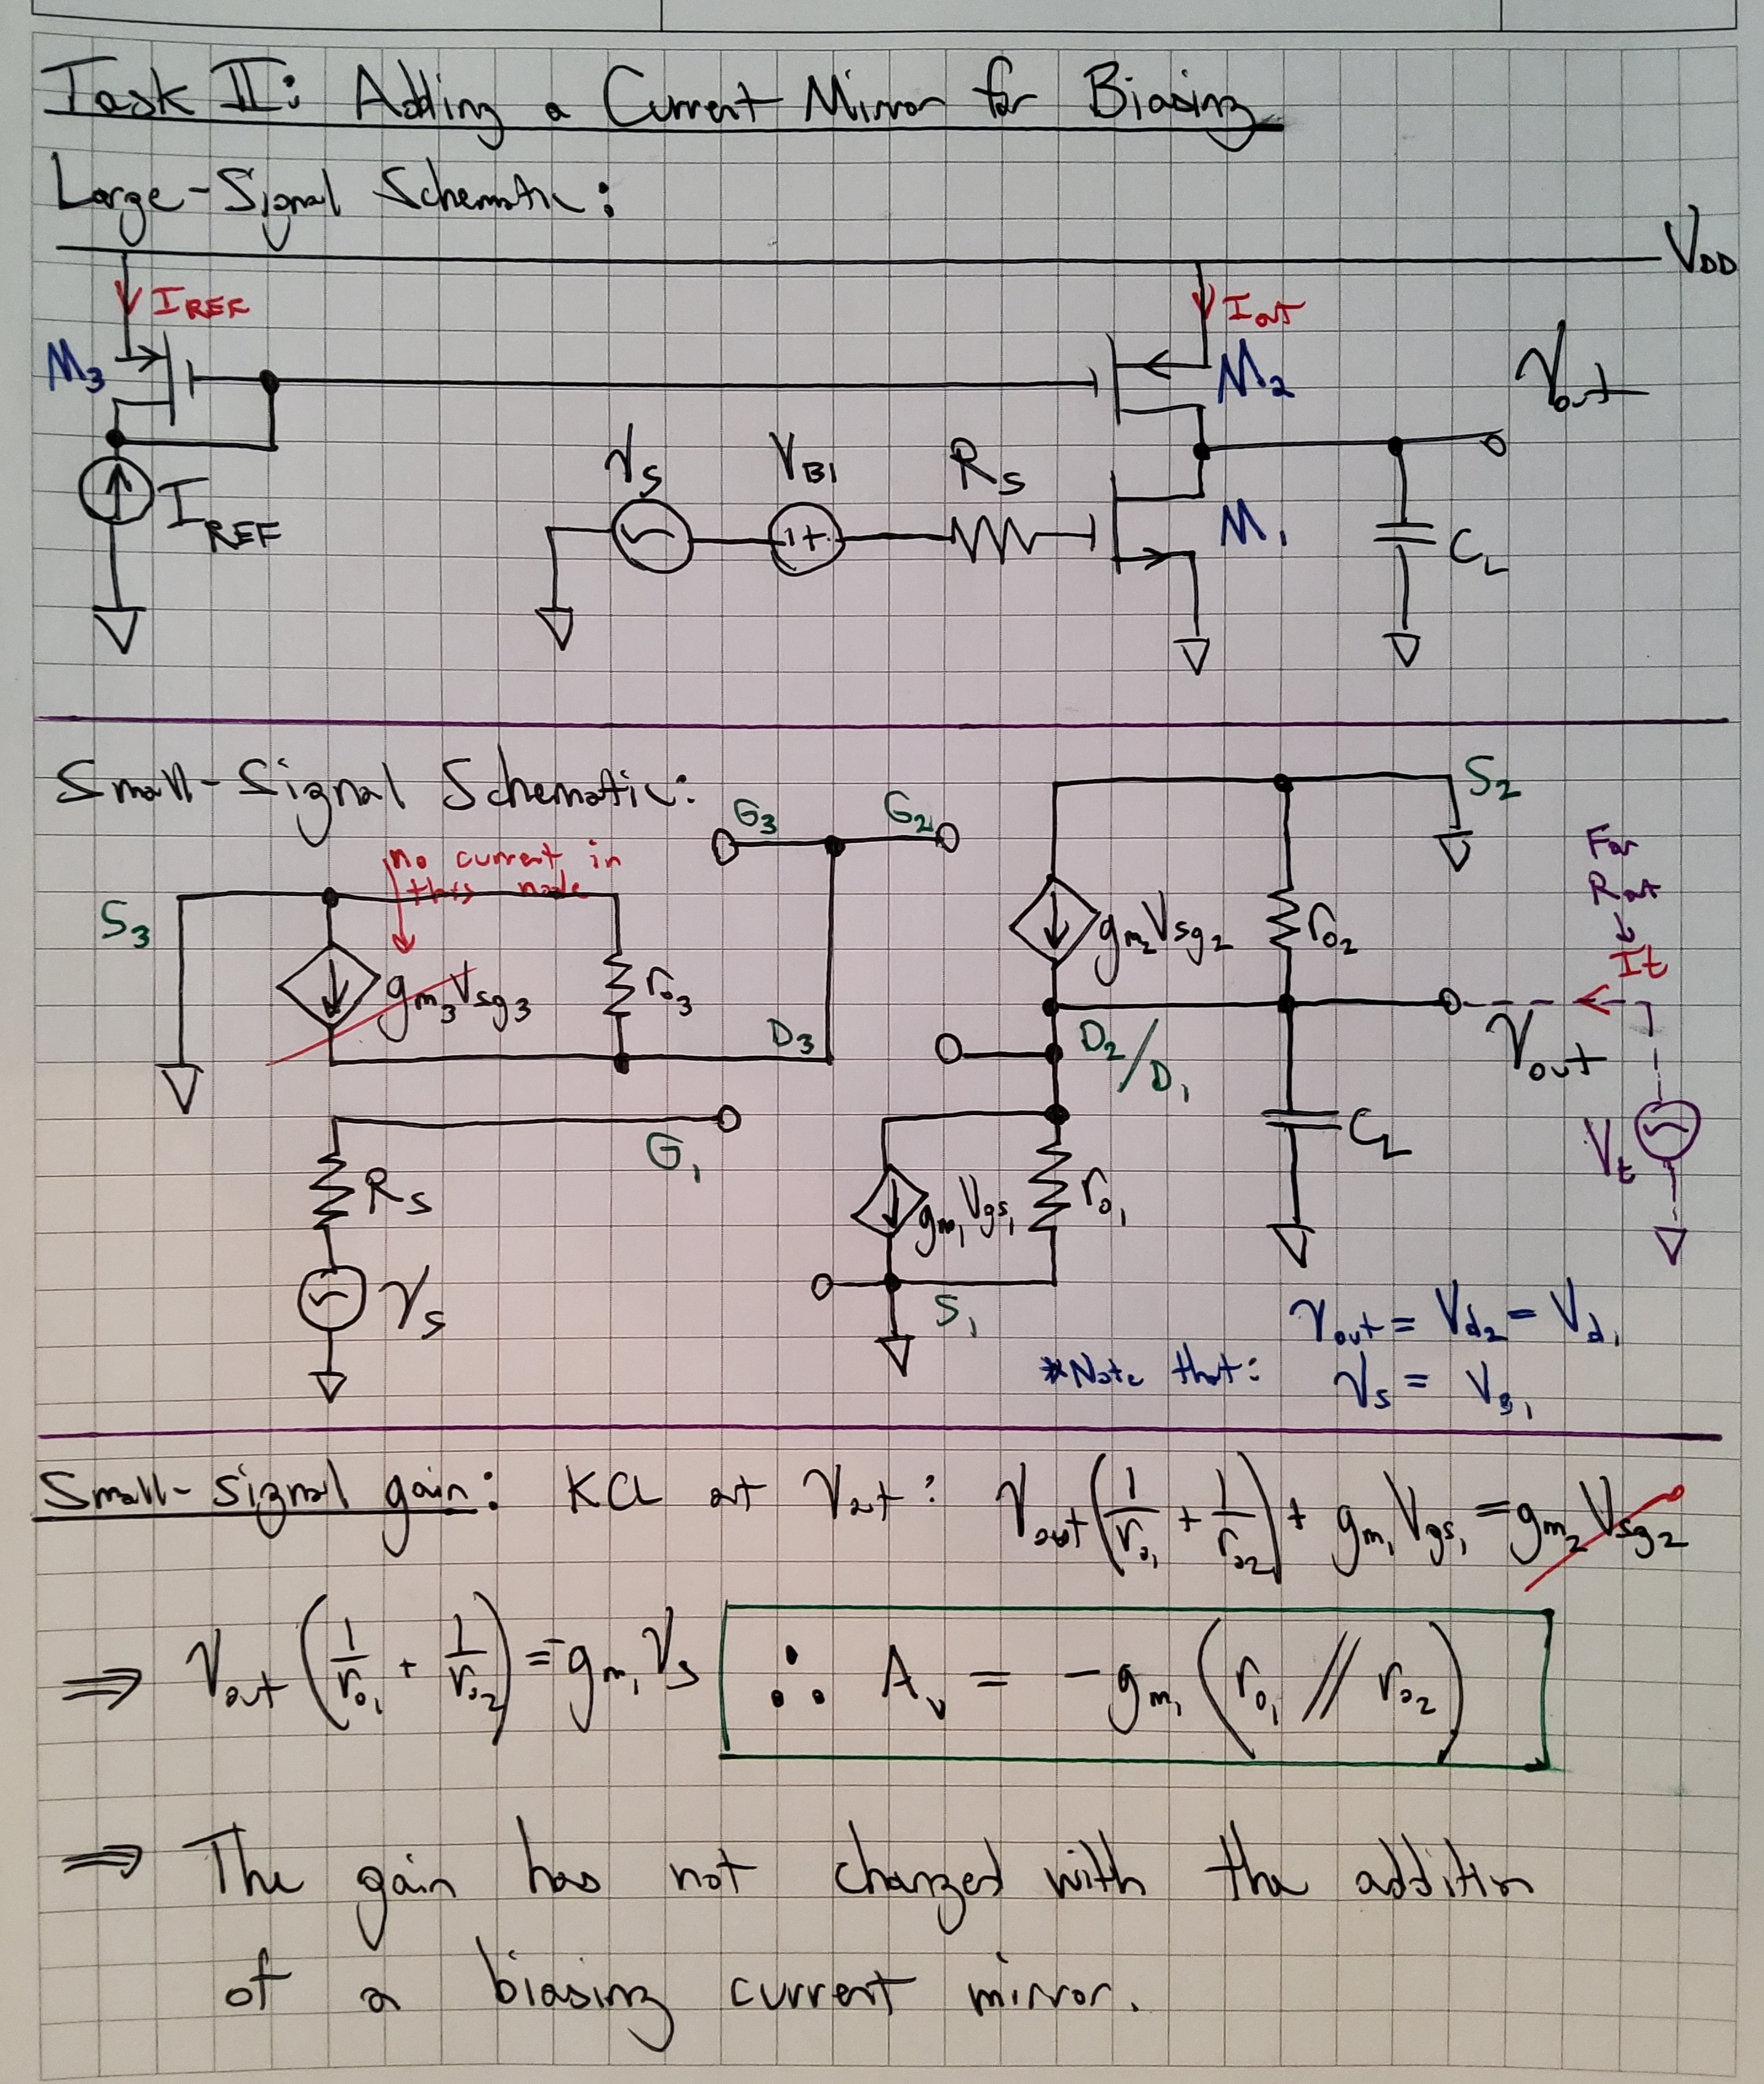 Task II: Adding a Current Mirror for Biasing
Large-Signal Schematic:
V_DD
I_REF
I_out
M_3
M_2
V_out
v_s
V_B1
R_s
I_REF
M_1
C_L
Small-Signal Schematic:
G_3
G_2
S_2
no current in
this node
For
R_out
S_3
g_m2 V_sg2
r_o2
I_t
g_m3 V_sg3
r_o3
D_3
D_2/D_1
V_out
G_1
C_L
V_t
R_s
g_m1 V_gs1
r_o1
v_s
S_1
v_out = V_d2 = V_d1
*Note that: v_s = V_g1
Small-signal gain: KCL at V_out: V_out (1/r_o1 + 1/r_o2) + g_m1 V_gs1 = g_m2 V_sg2
⇒ V_out (1/r_o1 + 1/r_o2) = -g_m1 V_s ∴ A_v = -g_m1 (r_o1 // r_o2)
⇒ The gain has not changed with the addition
of a biasing current mirror.